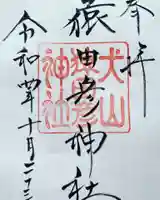 奉拝
猿田彦神社
犬山
猿田彦
神社
令和四年十月二十三日